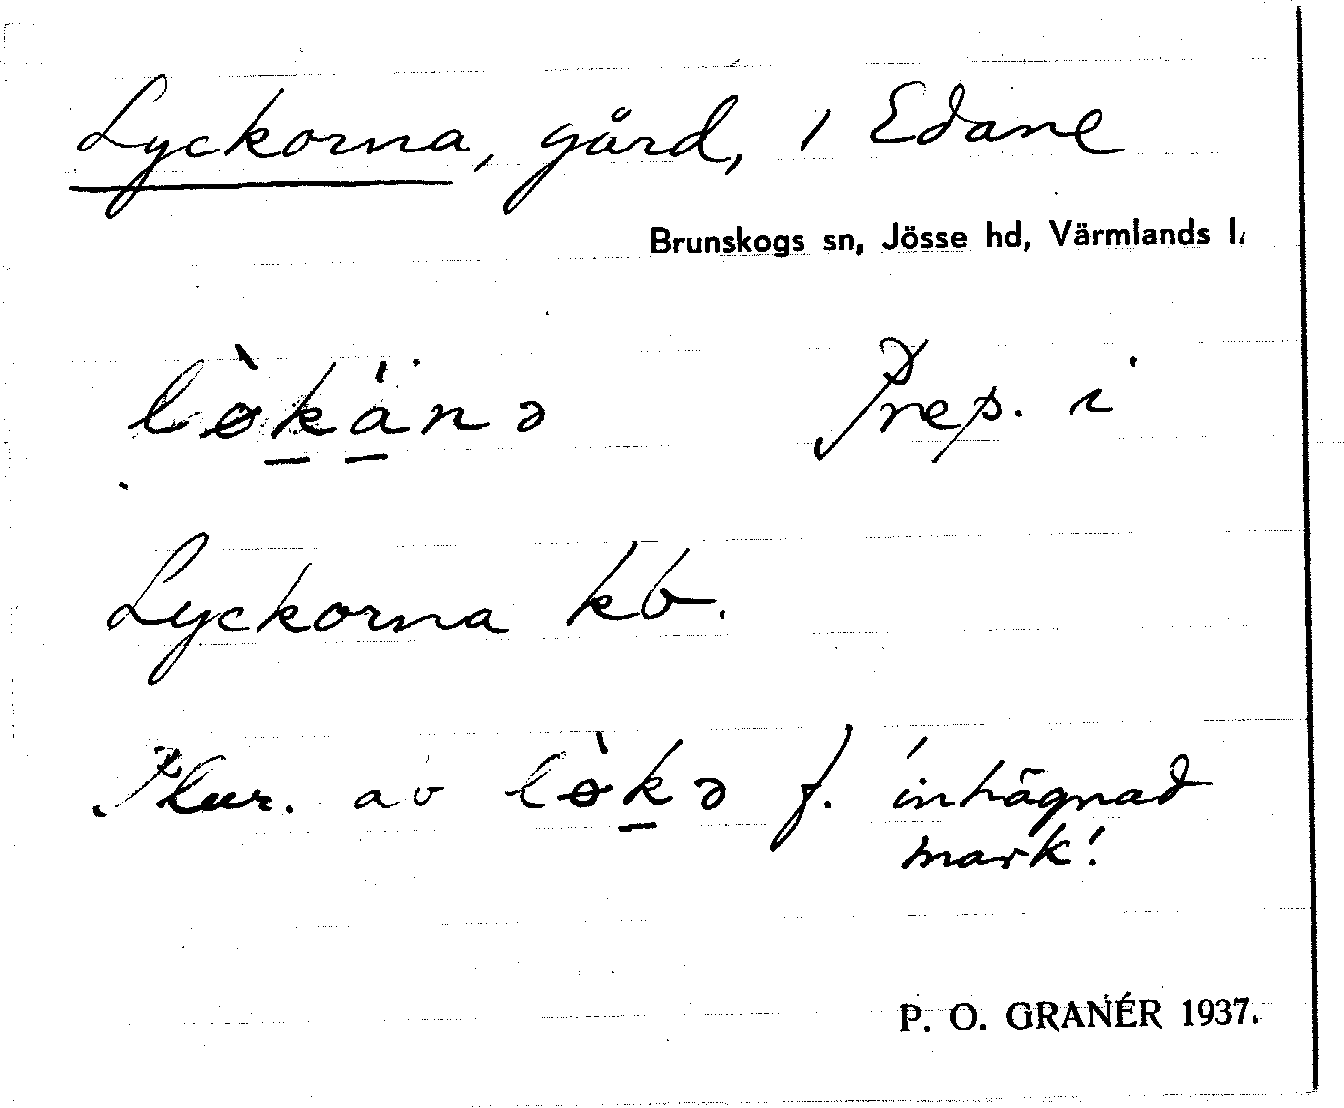 Lyckorna, gård, i Edane
Brunskogs sn, Jösse hd, Värmlands l.
lø̀känə Prep. i
Lyckorna kb.
Plur. av lø̀kə f. 'inhägnad
mark'.
P. O. GRANÉR 1937.